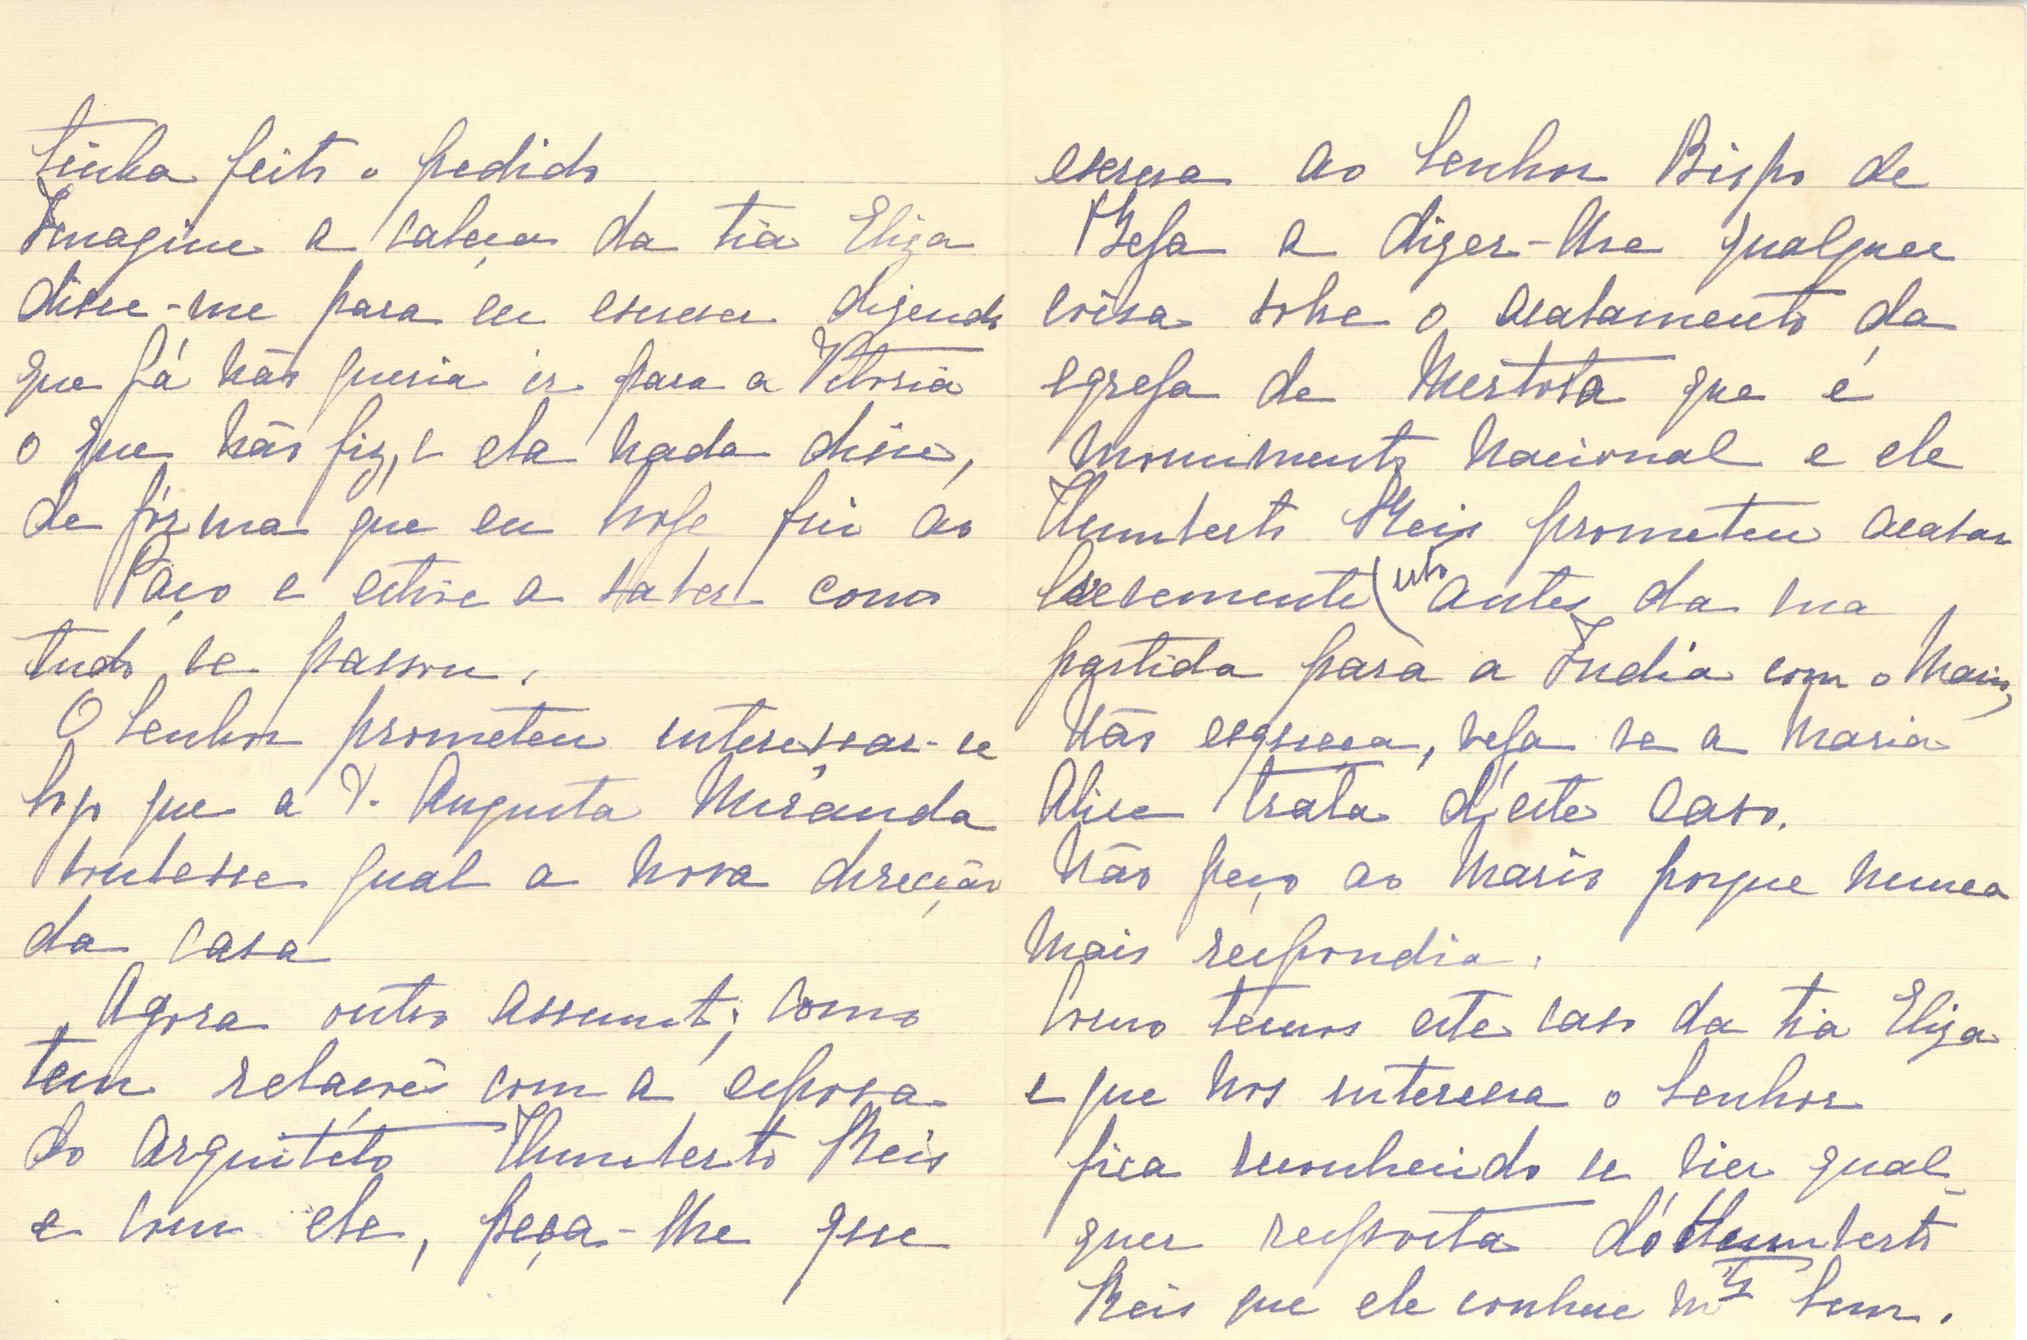 tinha feito o pedido
Imagine a cabeça da tia Eliza
disse-me para eu escrever dizendo
que já não queria ir para a Vitoria
o que não fiz, e ela nada disse,
de fórma que eu hoje fui ao
Paço e estive a saber como
tudo se passou.
O Senhor prometeu interessar-se
logo que a D. Augusta Miranda
soubesse qual a nova direcção
da casa
Agora outro assunto; como
tem relações com a esposa
do arquitéto Humberto Reis
e com ele, peça-lhe que
escreva ao Senhor Bispo de
Beja a dizer-lhe qualquer
coisa sobre o acatamento da
egreja de Mertola que é
monumento nacional e ele
Humberto Reis prometeu acabar
brevemente (isto antes da sua
partida para a India com o Mario,
não esqueça, veja se a Maria
Alice trata d'este caso.
Não peço ao Mario porque nunca
mais respondia.
Como temos este caso da tia Eliza
e que nos interessa o Senhor
fica reconhecido se vier qual-
quer resposta do Humberto
Reis que ele conhece mto bem.